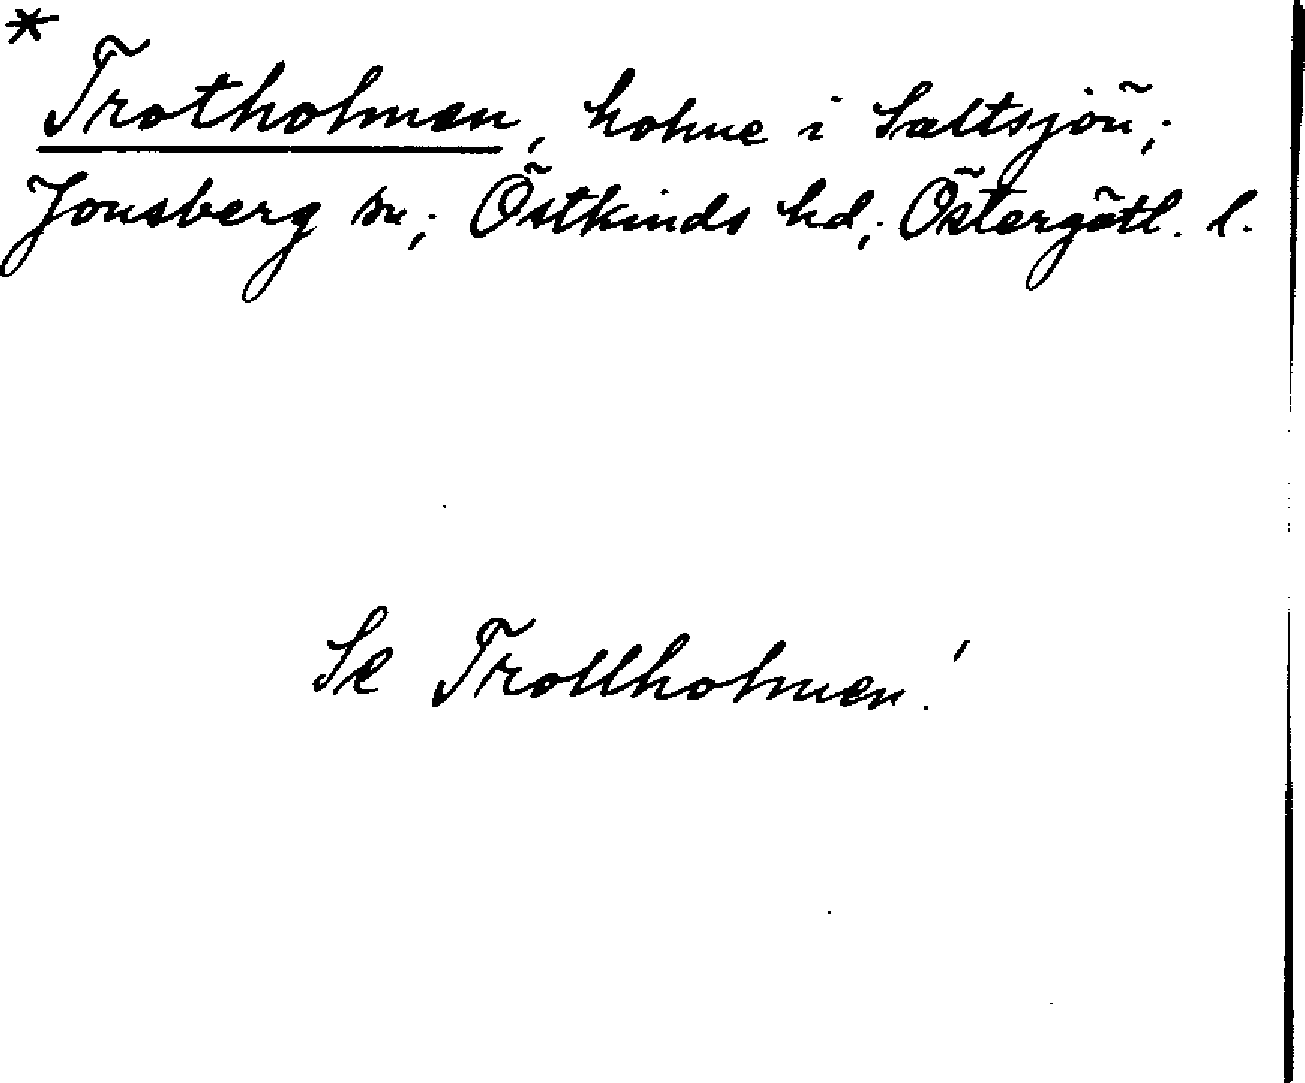 *
Trotholmen, holme i Saltsjön;
Jonsberg sn; Östkinds hd; Östergötl. l.
Se Trollholmen!